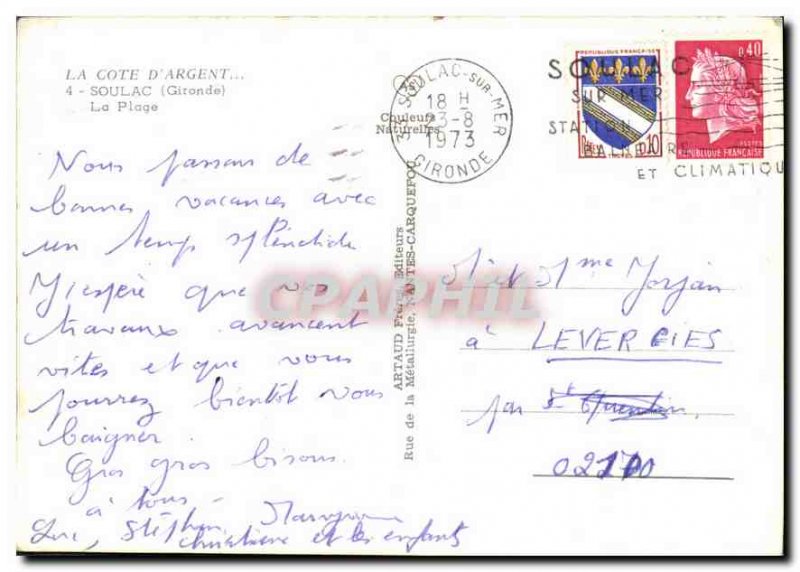 LA COTE D'ARGENT...
4 - SOULAC (Gironde)
La Plage
Couleurs
Naturelles
SOULAC-SUR-MER
18 H
23-8
1973
GIRONDE
REPUBLIQUE FRANCAISE
0,10
0,40
POSTES
REPUBLIQUE FRANÇAISE
SOULAC
SUR MER
STATION
BALNEAIRE
ET CLIMATIQU
Nous passons de
bonnes vacances avec
un temps splendide
J'espère que vos
travaux avancent
vites et que vous
pourrez bientôt vous
baigner.
Gros gros bisous
à tous
Luc, Stéphan,
christiane et les enfants
ARTAUD Frères Editeurs
Rue de la Métallurgie, NANTES-CARQUEFOU
CPAPHIL
M et Mme
à LEVERGIES
par St Quentin